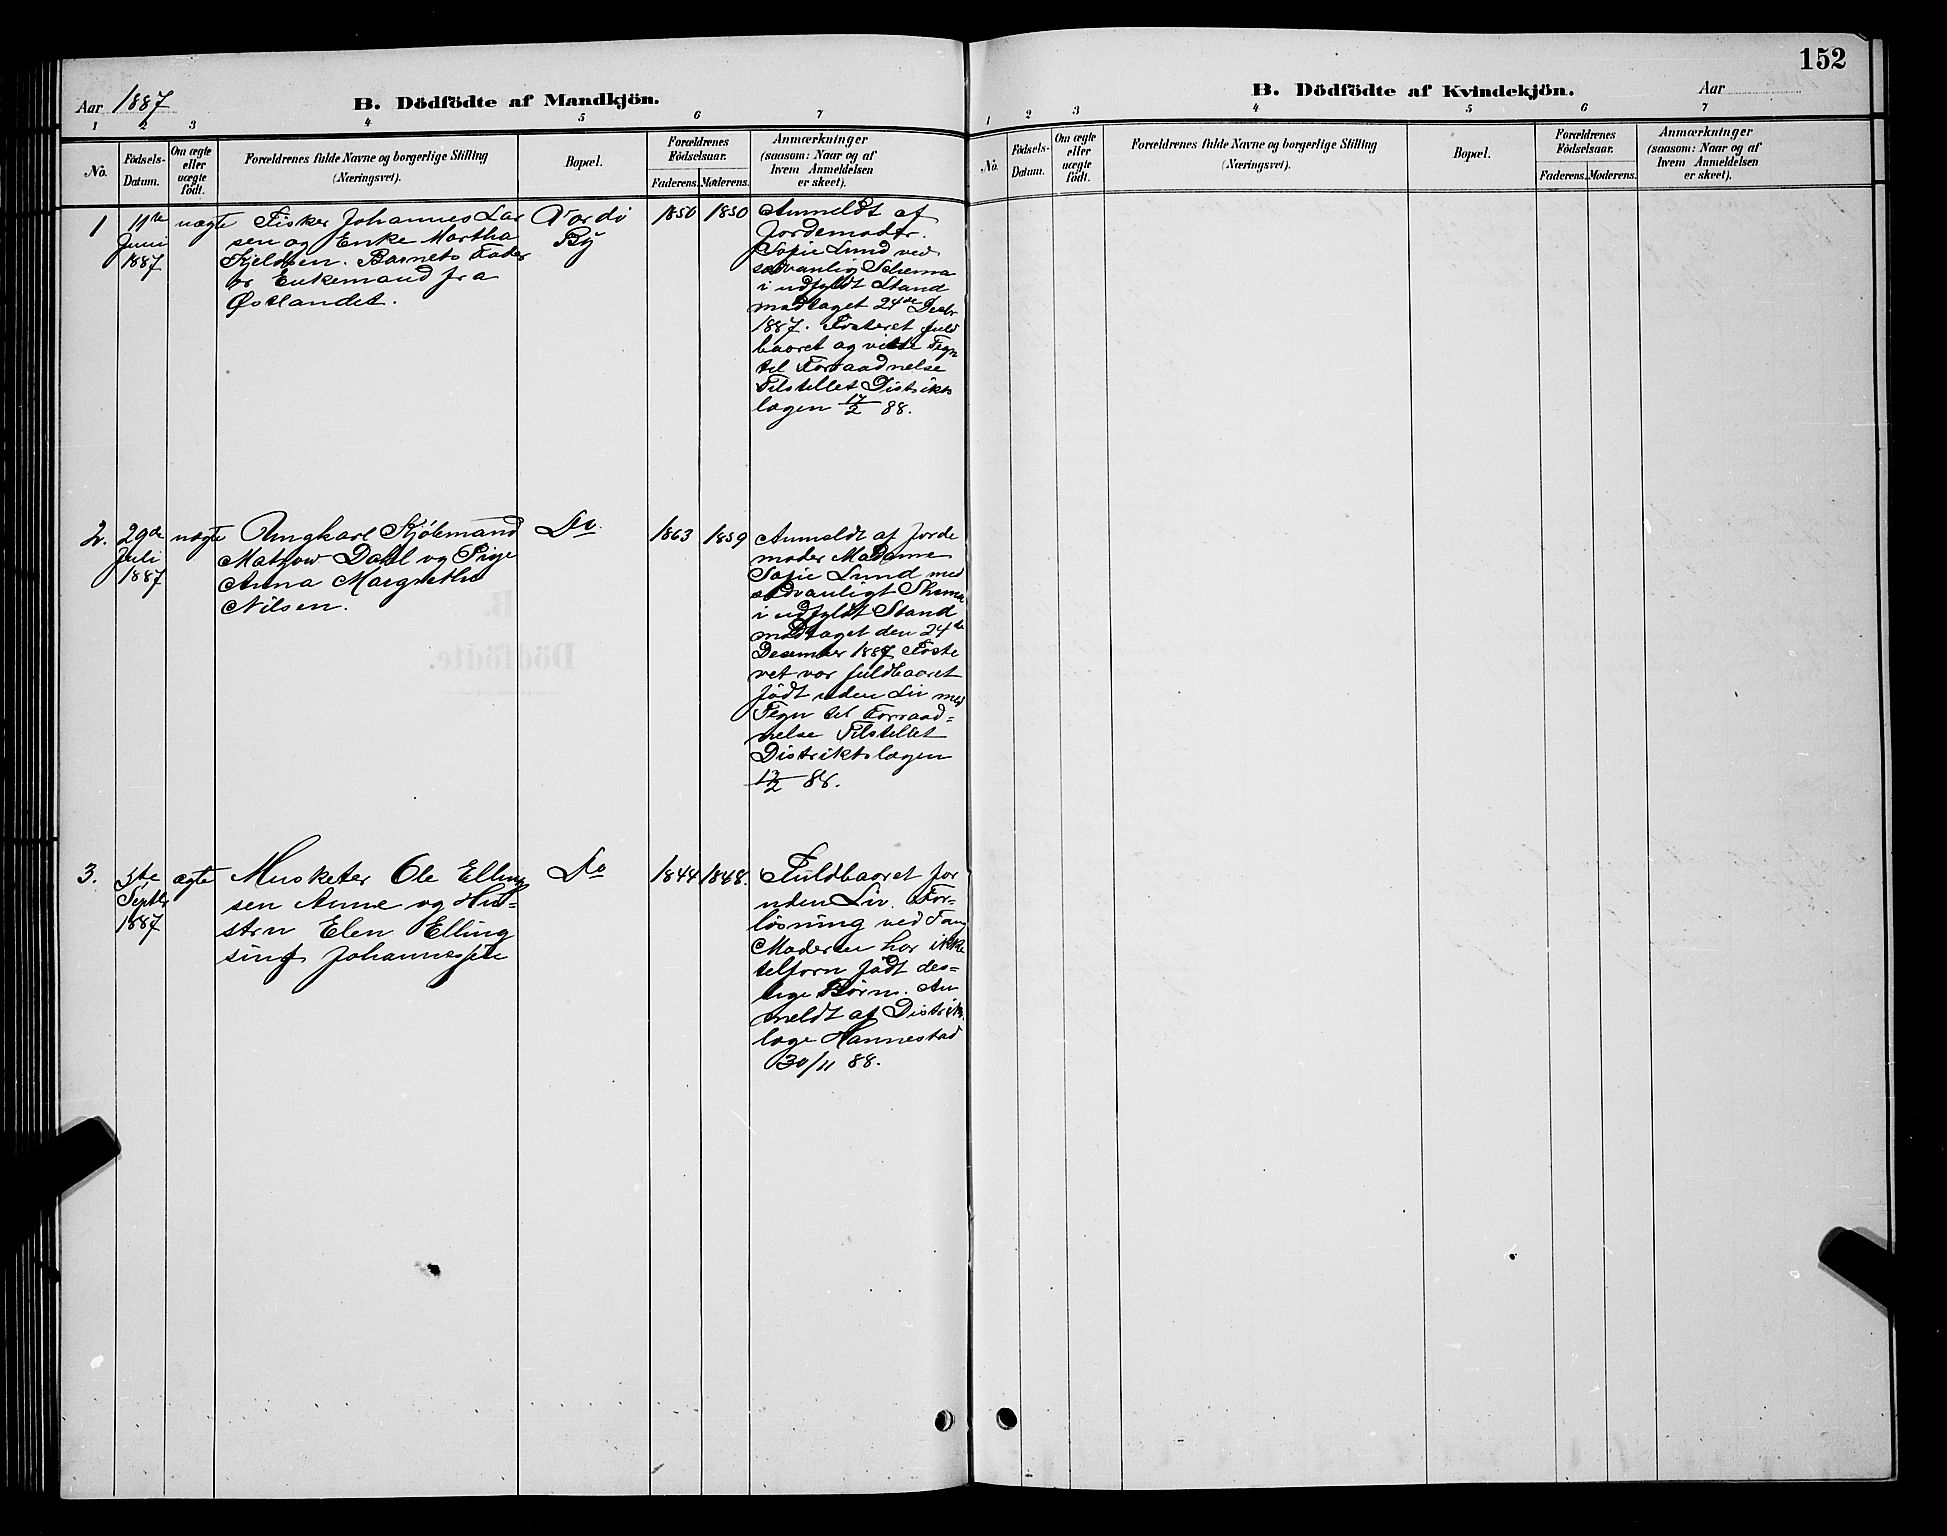 152
Aar 1887
B. Dödfödte af Mandkjön.
1 2 3 4 5 6 7
No.
Födsels-Datum.
Om ægte eller uægte födt.
Forældrenes fulde Navne og borgerlige Stilling
(Næringsvei).
Bopæl.
Forældrenes Födselsaar.
Faderens. Moderens.
Anmærkninger
(saasom: Naar og af
hvem Anmeldelsen
er skeet).
1
11te
Juni
1887
uægte
Fisker Johannes Lar
sen og Enke Martha
Kjeldsen. Barnets Fader
er Enkemand fra
Østlandet.
Vardö
By
1850 1850
Anmeldt af
Jordemodr.
Sofie Lund ved
sædvanlig Schema
i udfyldt Stand
modtaget 24de Decbr
1887. Fosteret fuld
baaret og viste Tegn
til Forraadnelse
Tilstillet Distrikts
lægen 17/2 88.
2.
29de
Juli
1887
uægte
Ungkarl Kjöbmand
Dahl og Pige
Anna Margrethe
Nilsen.
Do.
1863 1859
Anmeldt af Jorde
moder Madame
Sofie Lund med
sædvanligt Shema
i udfyldt Stand
modtaget den 24de
Desember 1887 Foste
ret var fuldbaaret
født uden Liv med
Tegn til Forraad=
nelse Tilstillet
Distriktslægen
17/2 88.
3.
3te
Septbr
1887
ægte
Musketer Ole Elling
sen Anne og Hu=
stru Elen Elling
sine Johannessen
Do
1844 1848.
Fuldbaaret for
uden Liv. For=
løsning ved Tang
Moderen har ikke
tilforn født des=
lige Børn. An
meldt af Distrikts
læge Hannestad
30/11 88.
B. Dödfödte af Kvindekjön.
Aar
1 2 3 4 5 6 7
No.
Födsels-Datum.
Om ægte eller uægte födt.
Forældrenes fulde Navne og borgerlige Stilling
(Næringsvei).
Bopæl.
Forældrenes Födselsaar.
Faderens. Moderens.
Anmærkninger
(saasom: Naar og af
hvem Anmeldelsen
er skeet).